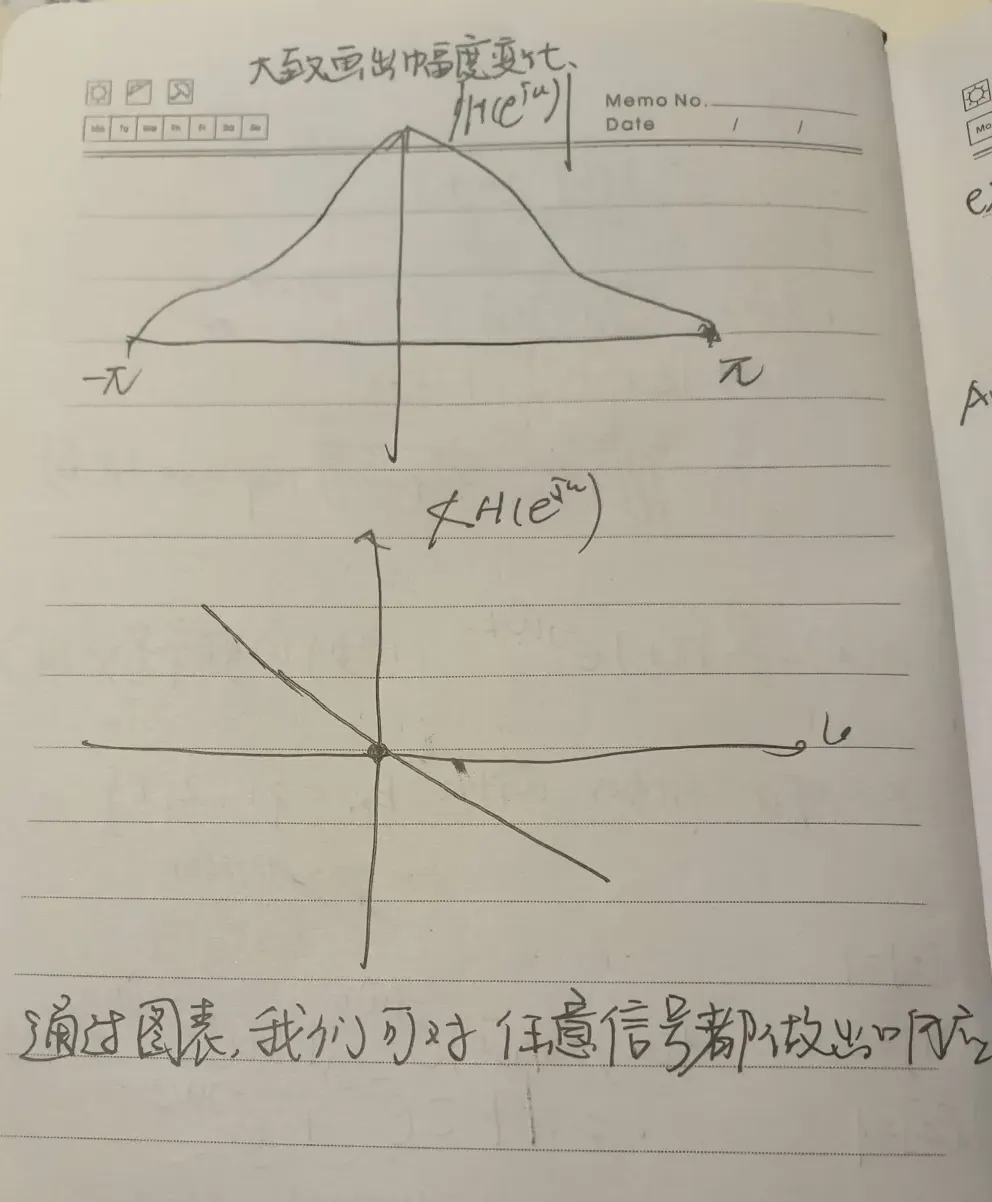 大致画出幅度变化、
|H(e^jω)|
Memo No.
Date / /
Mo Tu We Th Fr Sa Su
-π
π
∠H(e^jω)
ω
通过图表,我们可对任意信号都做出响应